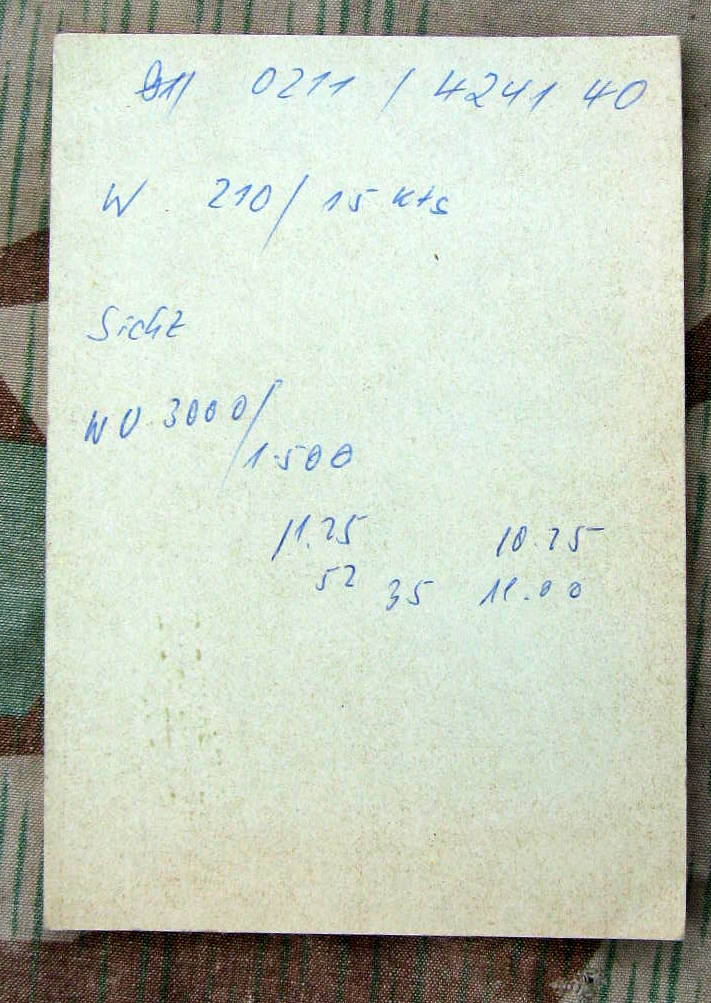 0211 / 4241 40
W 210 / 15 kts
Sicht
WU 3000 /
1500
11.25 10.25
52 35 11.00